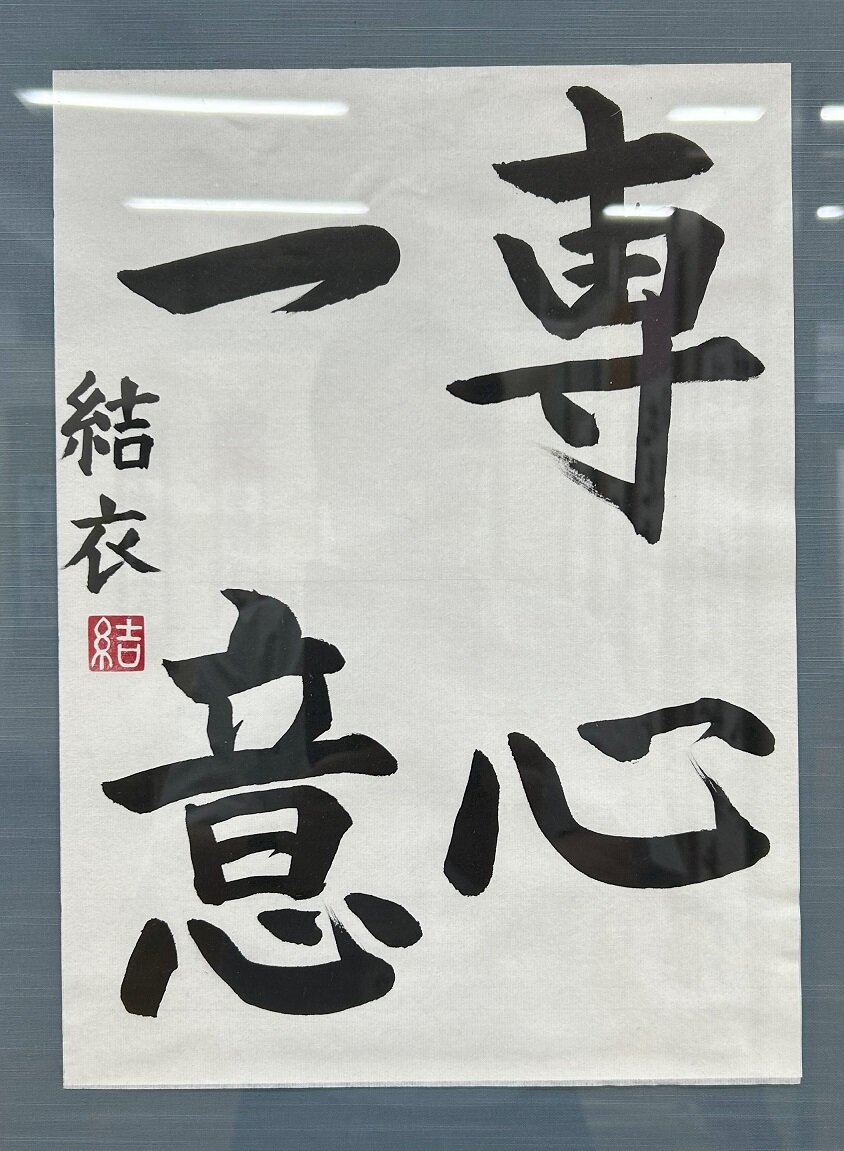 専心
一意
結衣
結